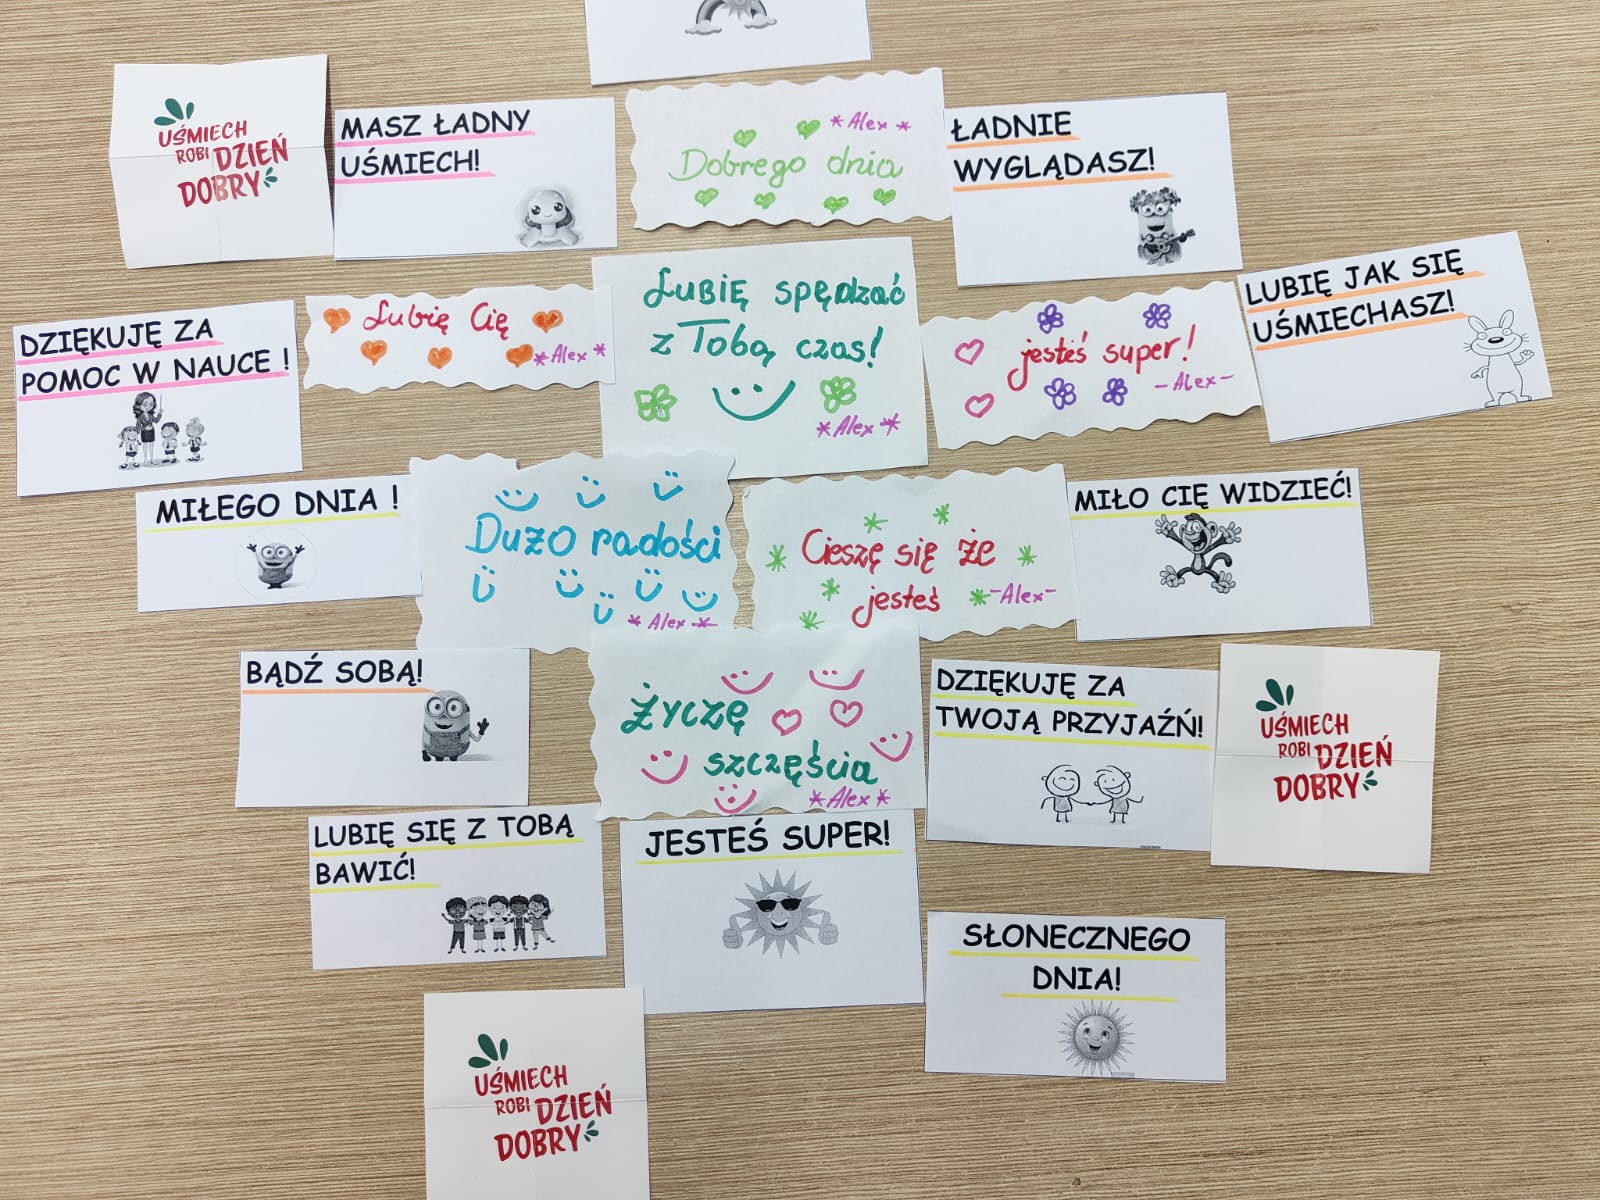 UŚMIECH
ROBI DZIEŃ
DOBRY
MASZ ŁADNY
UŚMIECH!
*Alex*
Dobrego dnia
ŁADNIE
WYGLĄDASZ!
DZIĘKUJĘ ZA
POMOC W NAUCE !
Lubię Cię
*Alex*
Lubię spędzać
z Tobą czas!
*Alex*
jesteś super!
-Alex-
LUBIĘ JAK SIĘ
UŚMIECHASZ!
MIŁEGO DNIA !
Dużo radości
*Alex*
Cieszę się że
jesteś
-Alex-
MIŁO CIĘ WIDZIEĆ!
BĄDŹ SOBĄ!
Życzę
szczęścia
*Alex*
DZIĘKUJĘ ZA
TWOJĄ PRZYJAŹŃ!
UŚMIECH
ROBI DZIEŃ
DOBRY
LUBIĘ SIĘ Z TOBĄ
BAWIĆ!
JESTEŚ SUPER!
SŁONECZNEGO
DNIA!
UŚMIECH
ROBI DZIEŃ
DOBRY